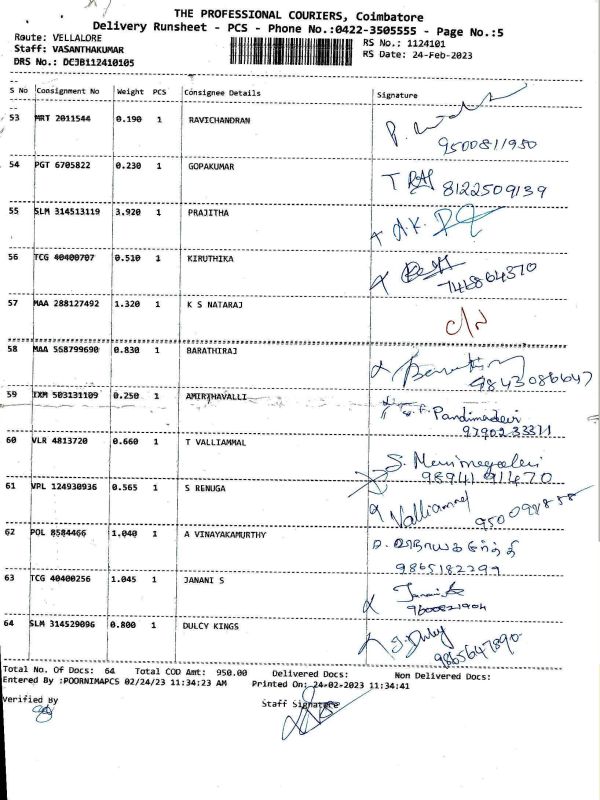 THE PROFESSIONAL COURIERS, Coimbatore
Delivery Runsheet - PCS - Phone No.:0422-3505555 - Page No.:5
Route: VELLALORE
RS No.: 1124101
Staff: VASANTHAKUMAR
RS Date: 24-Feb-2023
DRS No.: DC3B112410105
S No Consignment No Weight PCS Consignee Details Signature
53 MRT 2011544 0.190 1 RAVICHANDRAN
9500811950
54 PGT 6705822 0.230 1 GOPAKUMAR
8122509139
55 SLM 314513119 3.920 1 PRAJITHA
56 TCG 40400707 0.510 1 KIRUTHIKA
57 MAA 288127492 1.320 1 K S NATARAJ
C/N
58 MAA 568799690 0.830 1 BARATHIRAJ
9843086647
59 IXM 503131109 0.250 1 AMIRTHAVALLI
Pandimadevi
60 VLR 4813720 0.660 1 T VALLIAMMAL
98941 91470
61 VPL 124930936 0.565 1 S RENUGA
Valliammal
62 POL 8584466 1.040 1 A VINAYAKAMURTHY
9865182299
63 TCG 40400256 1.045 1 JANANI S
64 SLM 314529096 0.800 1 DULCY KINGS
9865647890
Total No. Of Docs: 64 Total COD Amt: 950.00 Delivered Docs: Non Delivered Docs:
Entered By :POORNIMAPCS 02/24/23 11:34:23 AM Printed On: 24-02-2023 11:34:41
Verified By
Staff Signature